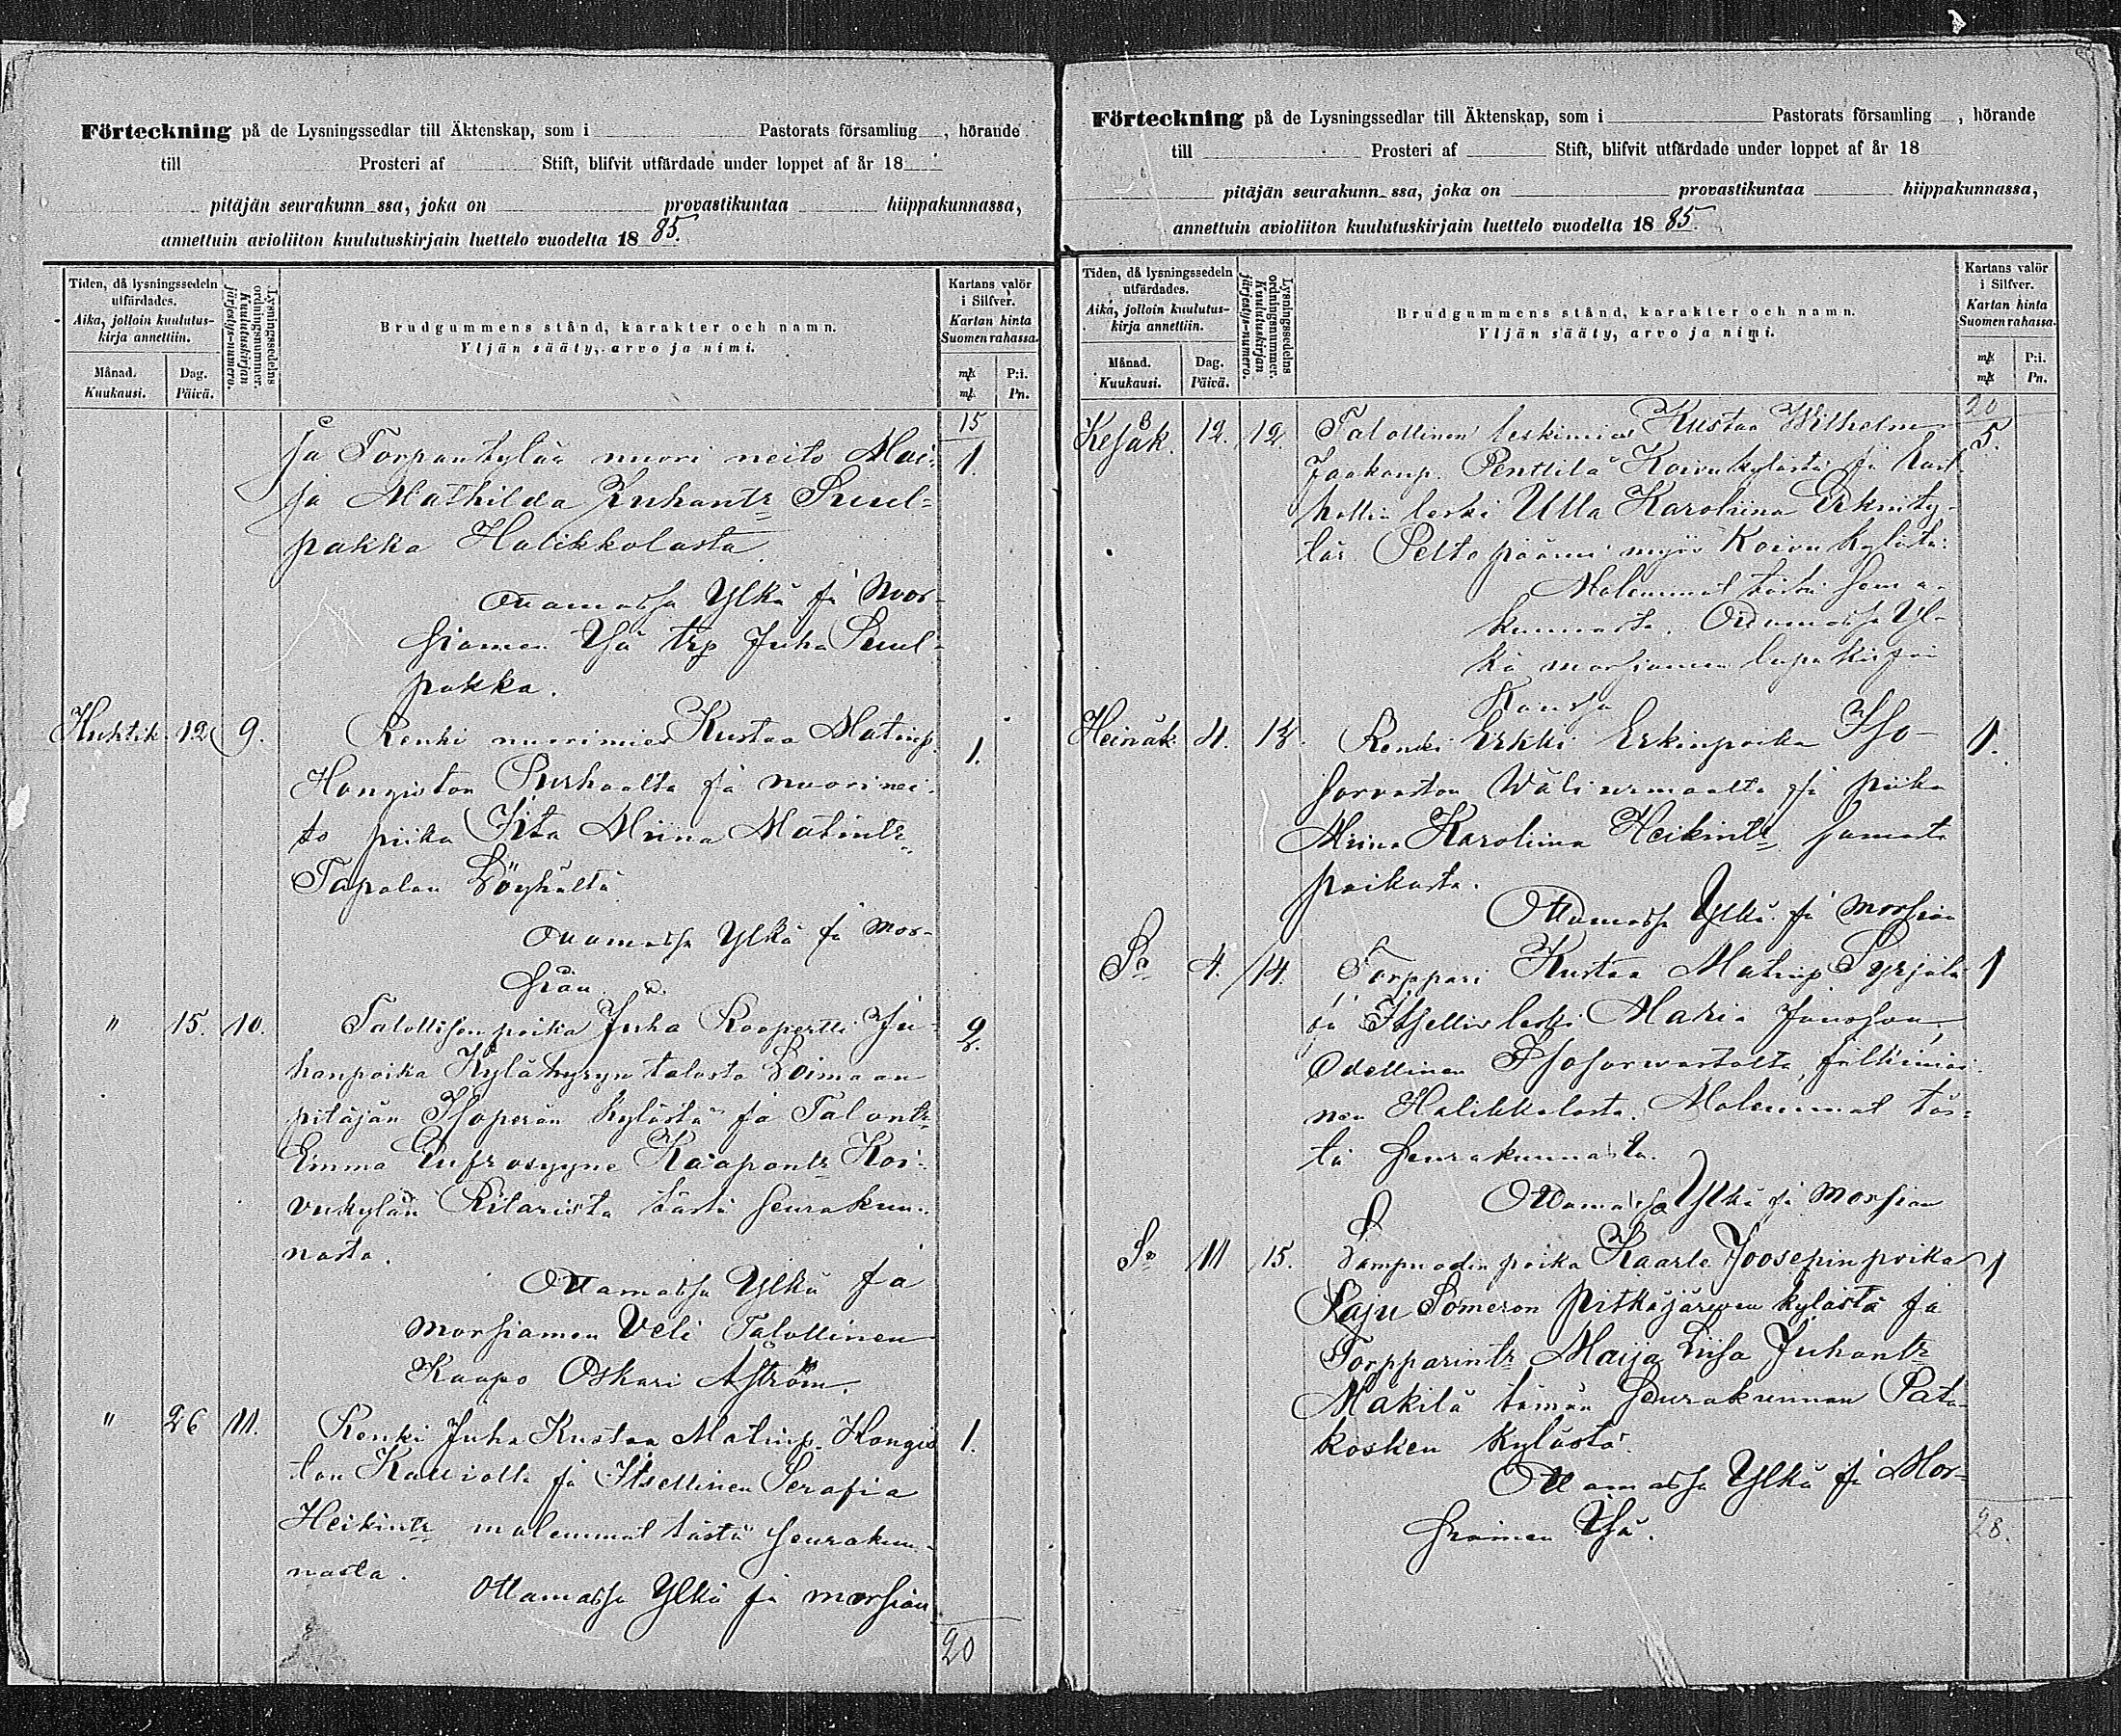 Förteckning på de Lysningssedlar till Äktenskap, som i Pastorats församling , hörande
till Prosteri af Stift, blifvit utfärdade under loppet af år 18
pitäjän seurakunn ssa, joka on provastikuntaa hiippakunnassa,
annettuin avioliiton kuulutuskirjain luettelo vuodelta 18 85.
Tiden, då lysningssedeln
utfärdades.
Aika, jolloin kuulutus-
kirja annettiin.
Månad.
Kuukausi.
Dag.
Päivä.
Lysningssedelns
ordningsnummer.
Kuulutuskirjan
järjestys-numero.
Brudgummens stånd, karakter och namn.
Yljän sääty, arvo ja nimi.
Kartans valör
i Silfver.
Kartan hinta
Suomen rahassa.
mk P:i.
mk. Pn.
15
ja Torpantytär nuori neito Mai- 1.
ja Mathilda Juhantr Suul-
pakka Halikkolasta
Ottamassa Ylkä ja Mor-
siamen Isä trp Juha Suul-
pakka.
Huhtik. 12 9. Renki nuorimies Kustaa Matinp. 1.
Hongiston Purhaalta ja nuori nei-
to piika Iita Miina Matintr
Tapalan Löyhältä
Ottamassa Ylkä ja Mor-
sian
" 15. 10. Talollisen poika Juha Roopertti Ju- 2.
hanpoika Kylähyryn talosta Loimaan
pitäjän Isoperän kylästä ja Talontr
Emma Eufrosyyne Kaapontr Koi-
vukylän Rilarista tästä seurakun-
nasta.
Ottamassa Ylkä ja
morsiamen Veli Talollinen
Kaapo Oskari Åström.
" 26 11. Renki Juha Kustaa Matinp. Hongis 1.
ton Kalliolta ja Itsellinen Serafia
Heikintr molemmat tästä seurakun-
nasta.
Ottamassa Ylkä ja morsian
20
Förteckning på de Lysningssedlar till Äktenskap, som i Pastorats församling , hörande
till Prosteri af Stift, blifvit utfärdade under loppet af år 18
pitäjän seurakunn ssa, joka on provastikuntaa hiippakunnassa,
annettuin avioliiton kuulutuskirjain luettelo vuodelta 18 85.
Tiden, då lysningssedeln
utfärdades.
Aika, jolloin kuulutus-
kirja annettiin.
Månad.
Kuukausi.
Dag.
Päivä.
Lysningssedelns
ordningsnummer.
Kuulutuskirjan
järjestys-numero.
Brudgummens stånd, karakter och namn.
Yljän sääty, arvo ja nimi.
Kartans valör
i Silfver.
Kartan hinta
Suomen rahassa.
mk P:i.
mk Pn.
20
Kesäk. 12. 12. Talollinen leskimies Kustaa Wilhelm 5.
Jaakonp. Penttilä Koivukylästä ja
leski Ulla Karoliina Erkinty-
tär Peltopään myös Koivukylästä:
Molemmat tästä seura-
kunnasta. Ottamassa Yl-
kä morsiamen lupakirjan
kanssa
Heinäk. 4. 13. Renki Erkki Erkinpoika Iso- 1.
sorvaston Wäliurmaalta ja piika
Miina Karoliina Heikintr samasta
paikasta.
Ottamassa Ylkä ja morsian
So 4. 14. Torppari Kustaa Matinp Syrjälä 1
ja Itsellis leski Maria Jansson,
Edellinen Isosorwastolta, jälkimäi-
nen Halikkolasta. Molemmat täs-
tä seurakunnasta.
Ottamassa Ylkä ja morsian
So 11 15. Lampuodin poika Kaarle Joosepinpoika 1
Raju Someron Pitkäjärven kylästä ja
Torpparintr Maija Liisa Juhantr
Makilä tämän seurakunnan Pata-
kosken kylästä.
Ottamassa Ylkä ja Mor-
siamen Isä.
28.